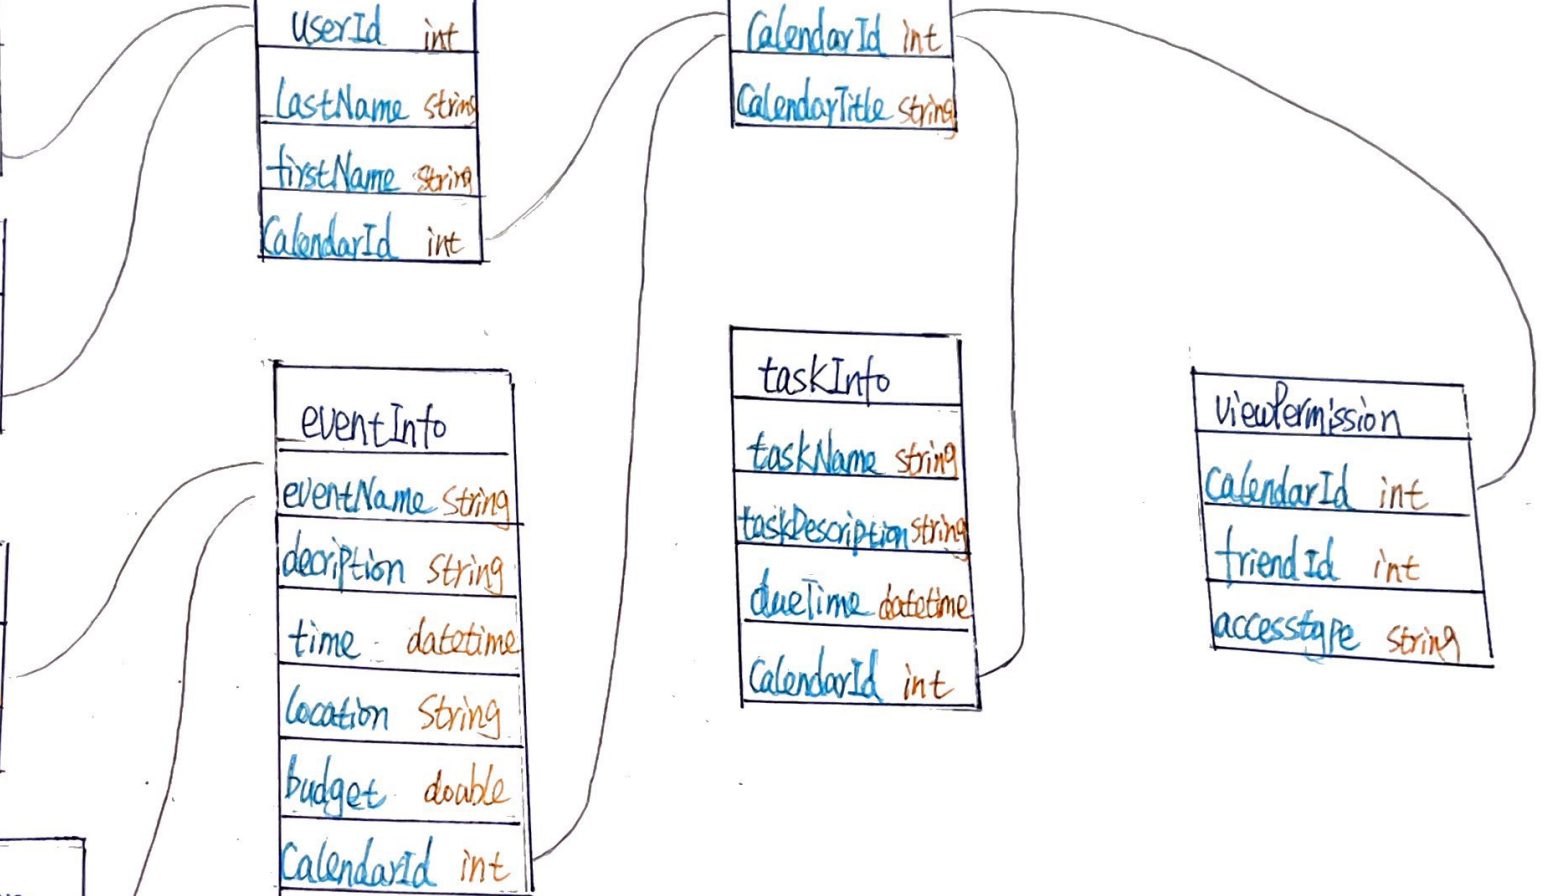 userId int
lastName string
firstName string
CalendarId int
CalendarId int
CalendarTitle string
eventInfo
eventName string
decription string
time datetime
location string
budget double
CalendarId int
taskInfo
taskName string
taskDescription string
dueTime datetime
CalendarId int
viewPermission
CalendarId int
friendId int
accesstype string